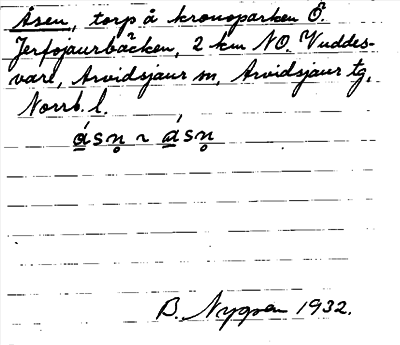 Åsen, torp å kronoparken Ö.
Jerfojaurbäcken, 2 km NO. Vuddes-
vare, Arvidsjaur sn, Arvidsjaur tg,
Norrb. l.
ǻsn̥ ~ ǻsn̥
B. Nygren 1932.